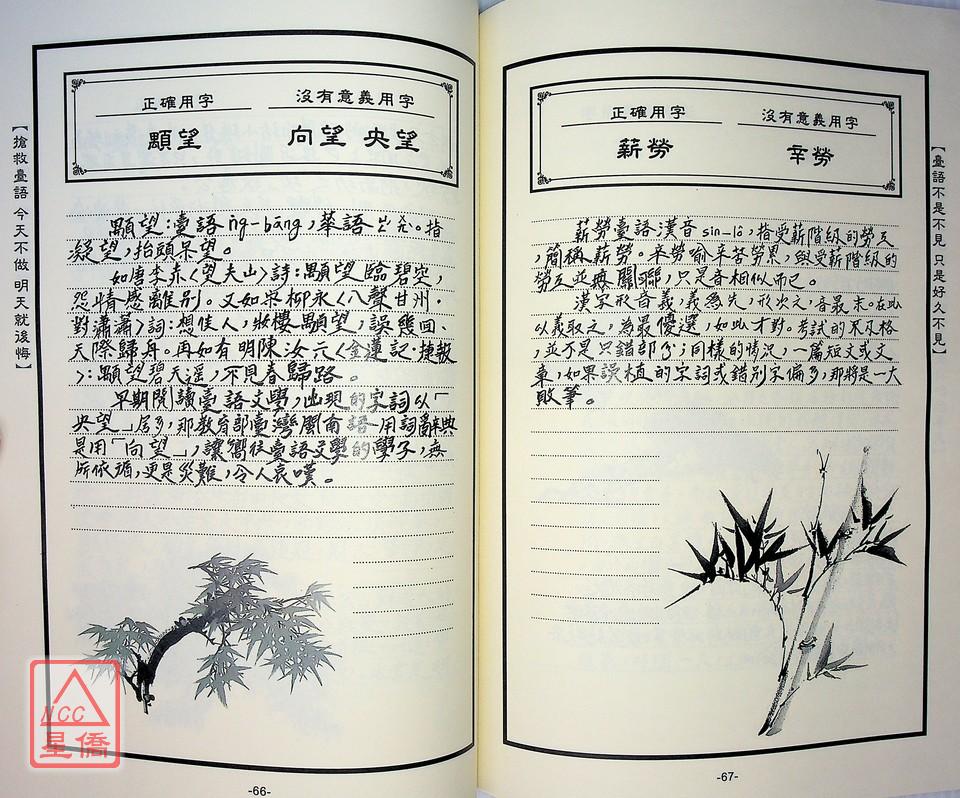 【搶救臺語 今天不做 明天就後悔】
正確用字 沒有意義用字
顒望 向望 央望
顒望：臺語ǹg-bāng，華語ㄩㄥˊ。指
凝望，抬頭呆望。
如唐李赤〈望夫山〉詩：顒望臨碧空，
怨情感離別。又如宋柳永〈八聲甘州·
對瀟瀟〉詞：想佳人，妝樓顒望，誤幾回、
天際歸舟。再如有明陳汝元〈金蓮記·捷報
〉：顒望碧天遥，不見春歸路。
早期閱讀臺語文學，出現的字詞以「
央望」居多，那教育部臺灣閩南語用詞辭典
是用「向望」，讓嚮往臺語文學的學子，無
所依循，更是災難，令人哀嘆。
NCC
星僑
-66-
正確用字 沒有意義用字
薪勞 辛勞
薪勞臺語漢音sin-lô，指受薪階級的勞工
，簡稱薪勞。辛勞喻辛苦勞累，與受薪階級的
勞工並無關聯，只是音相似而已。
漢字形音義，義為先，形次之，音最末。在此
以義取之，為最優選，如此才對。考試的不及格
，並不是只錯部分；同樣的情況，一篇短文或文
章，如果誤植的字詞或錯別字偏多，那將是一大
敗筆。
【臺語不是不見 只是好久不見】
-67-